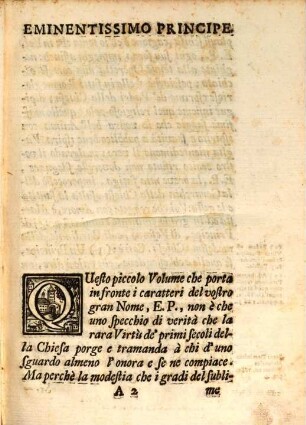 EMINENTISSIMO PRINCIPE.
QUesto piccolo Volume che porta
in fronte i caratteri del vostro
gran Nome, E. P., non è che
uno specchio di verità che la
rara Virtù de' primi secoli del-
la Chiesa porge e tramanda à chi d'uno
sguardo almeno l'onora e se ne compiace.
Ma perchè la modestia che i gradi del subli-
A 2 me